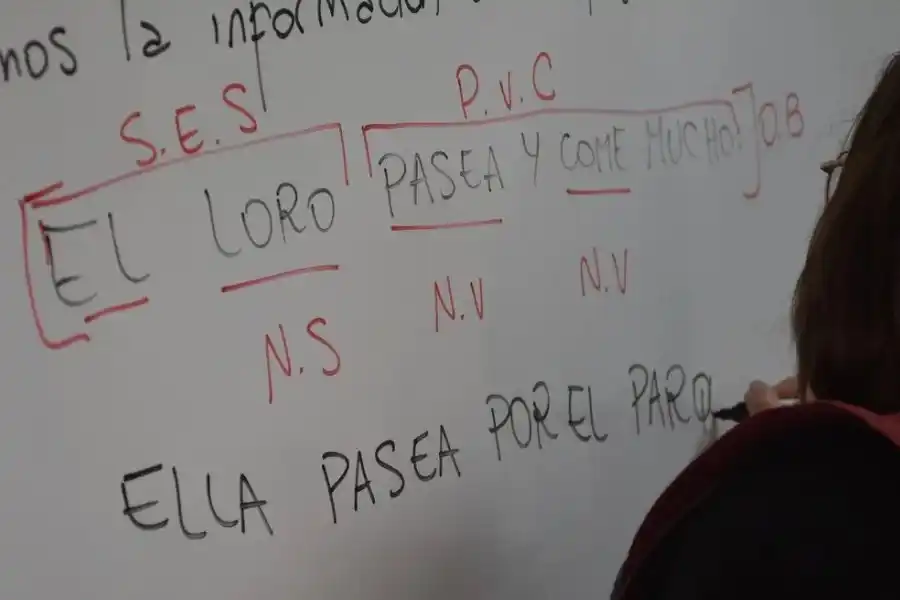 nos la información
S.E.S P.V.C
EL LORO PASEA Y COME MUCHO.]O.B
N.S N.V N.V
ELLA PASEA POR EL PARQ